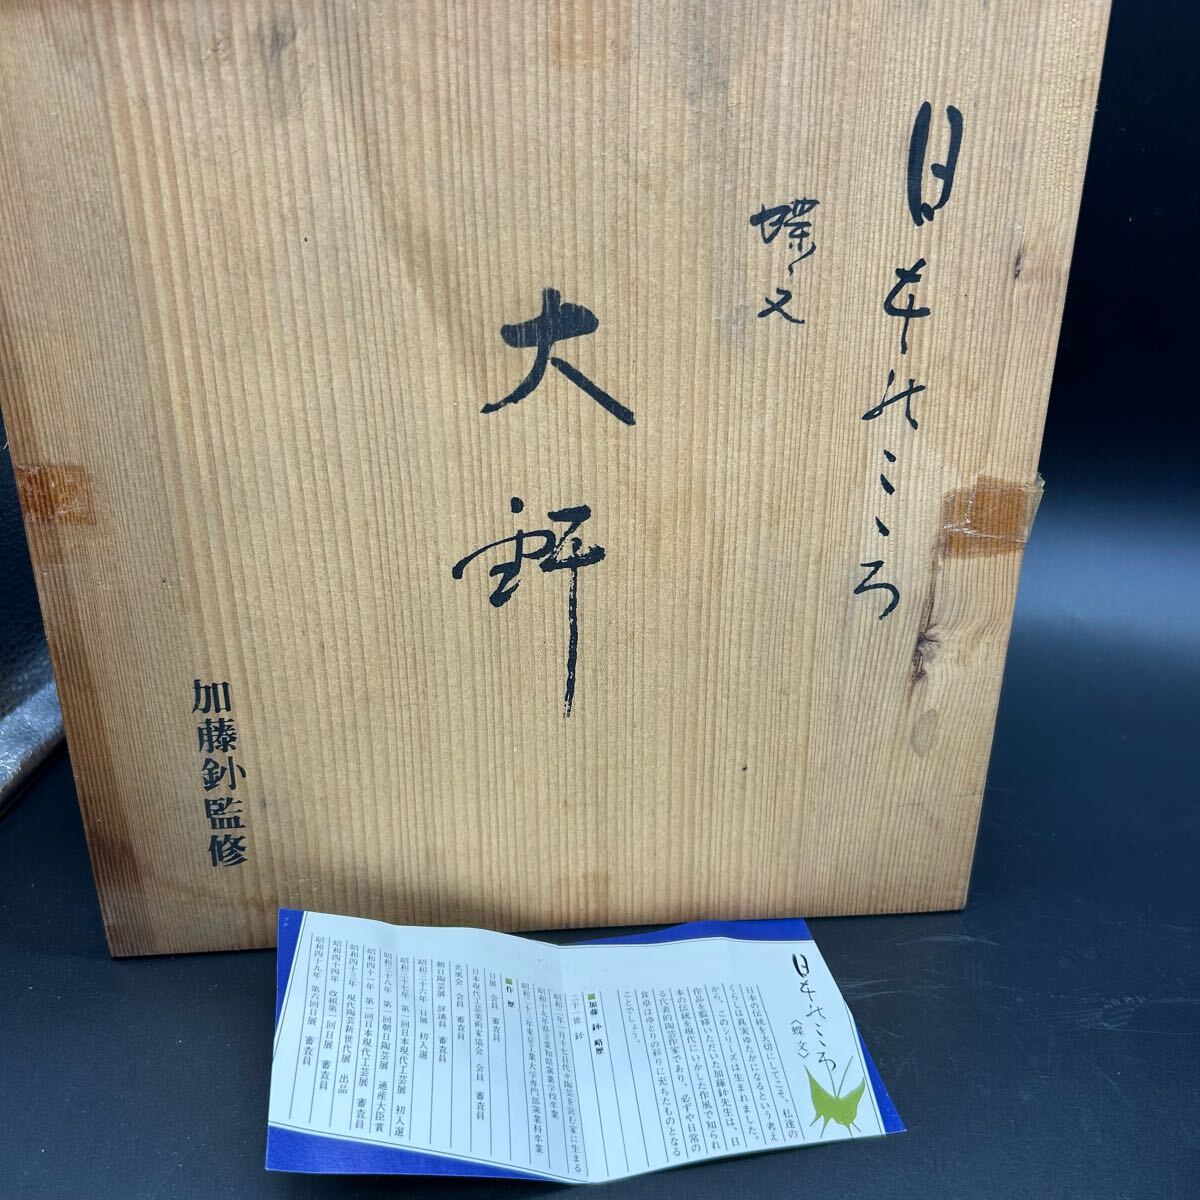 日本のこころ
蝶文
大鉢
加藤釥監修
日本のこころ
〈蝶文〉
日本の伝統を大切にしてこそ、私達の
くらしは真実ゆたかになるという考え
から、このシリーズは生まれました。
作品を監修いただいた加藤釥先生は、日
本の伝統を現代にいかした作風で知られ
る代表的陶芸作家であり、必ずや日常の
食卓はゆとりの彩りに充ちたものとなる
ことでしょう。
■加藤 釥 略歴
二十一世 釥
昭和二年一月十七日代々陶芸を営む家に生まる
昭和十九年県立愛知県窯業学校卒業
昭和二十三年東京工業大学専門部窯業科卒業
■作 歴
日展 会員 審査員
日本現代工芸美術家協会 会員 審査員
光風会 会員 審査員
朝日陶芸展 評議員 審査員
昭和二十六年 日展 初入選
昭和三十七年 第一回日本現代工芸展 初入選
昭和三十八年 第一回朝日陶芸展 通産大臣賞
昭和四十一年 第二回日本現代工芸展 審査員
昭和四十三年 現代陶芸新世代展 出品
昭和四十四年 改組第一回日展 審査員
昭和四十九年 第六回日展 審査員